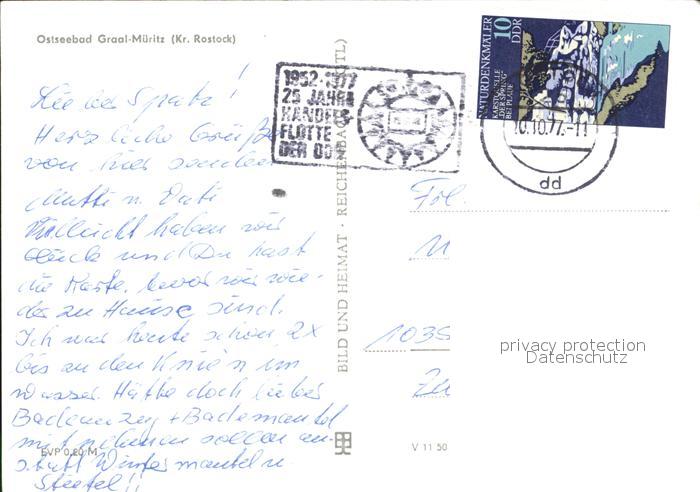 Ostseebad Graal-Müritz (Kr. Rostock)
1952-1977
25 JAHRE
HANDELS
FLOTTE
DER DDR
NATURDENKMÄLER
10
DDR
KARSTQUELLE
DER SPRING
BEI PLAUE
10.10.77.-11
dd
Lieber Spatz!
Herzliche Grüße
von hier senden
Mutti u. Vati
Vielleicht haben wir
Glück und Du hast
die Karte, bevor wir wie-
der zu Hause sind.
Ich war heute schon 2x
bis an den Knien im
Wasser. Hätte doch lieber
Badeanzug + Bademantel
mitnehmen sollen an-
statt Wintermantel u
Stiefel!!
BILD UND HEIMAT · REICHENBACH (VOGTL)
Frl.
1035
privacy protection
Datenschutz
EVP 0,20 M
V 11 50